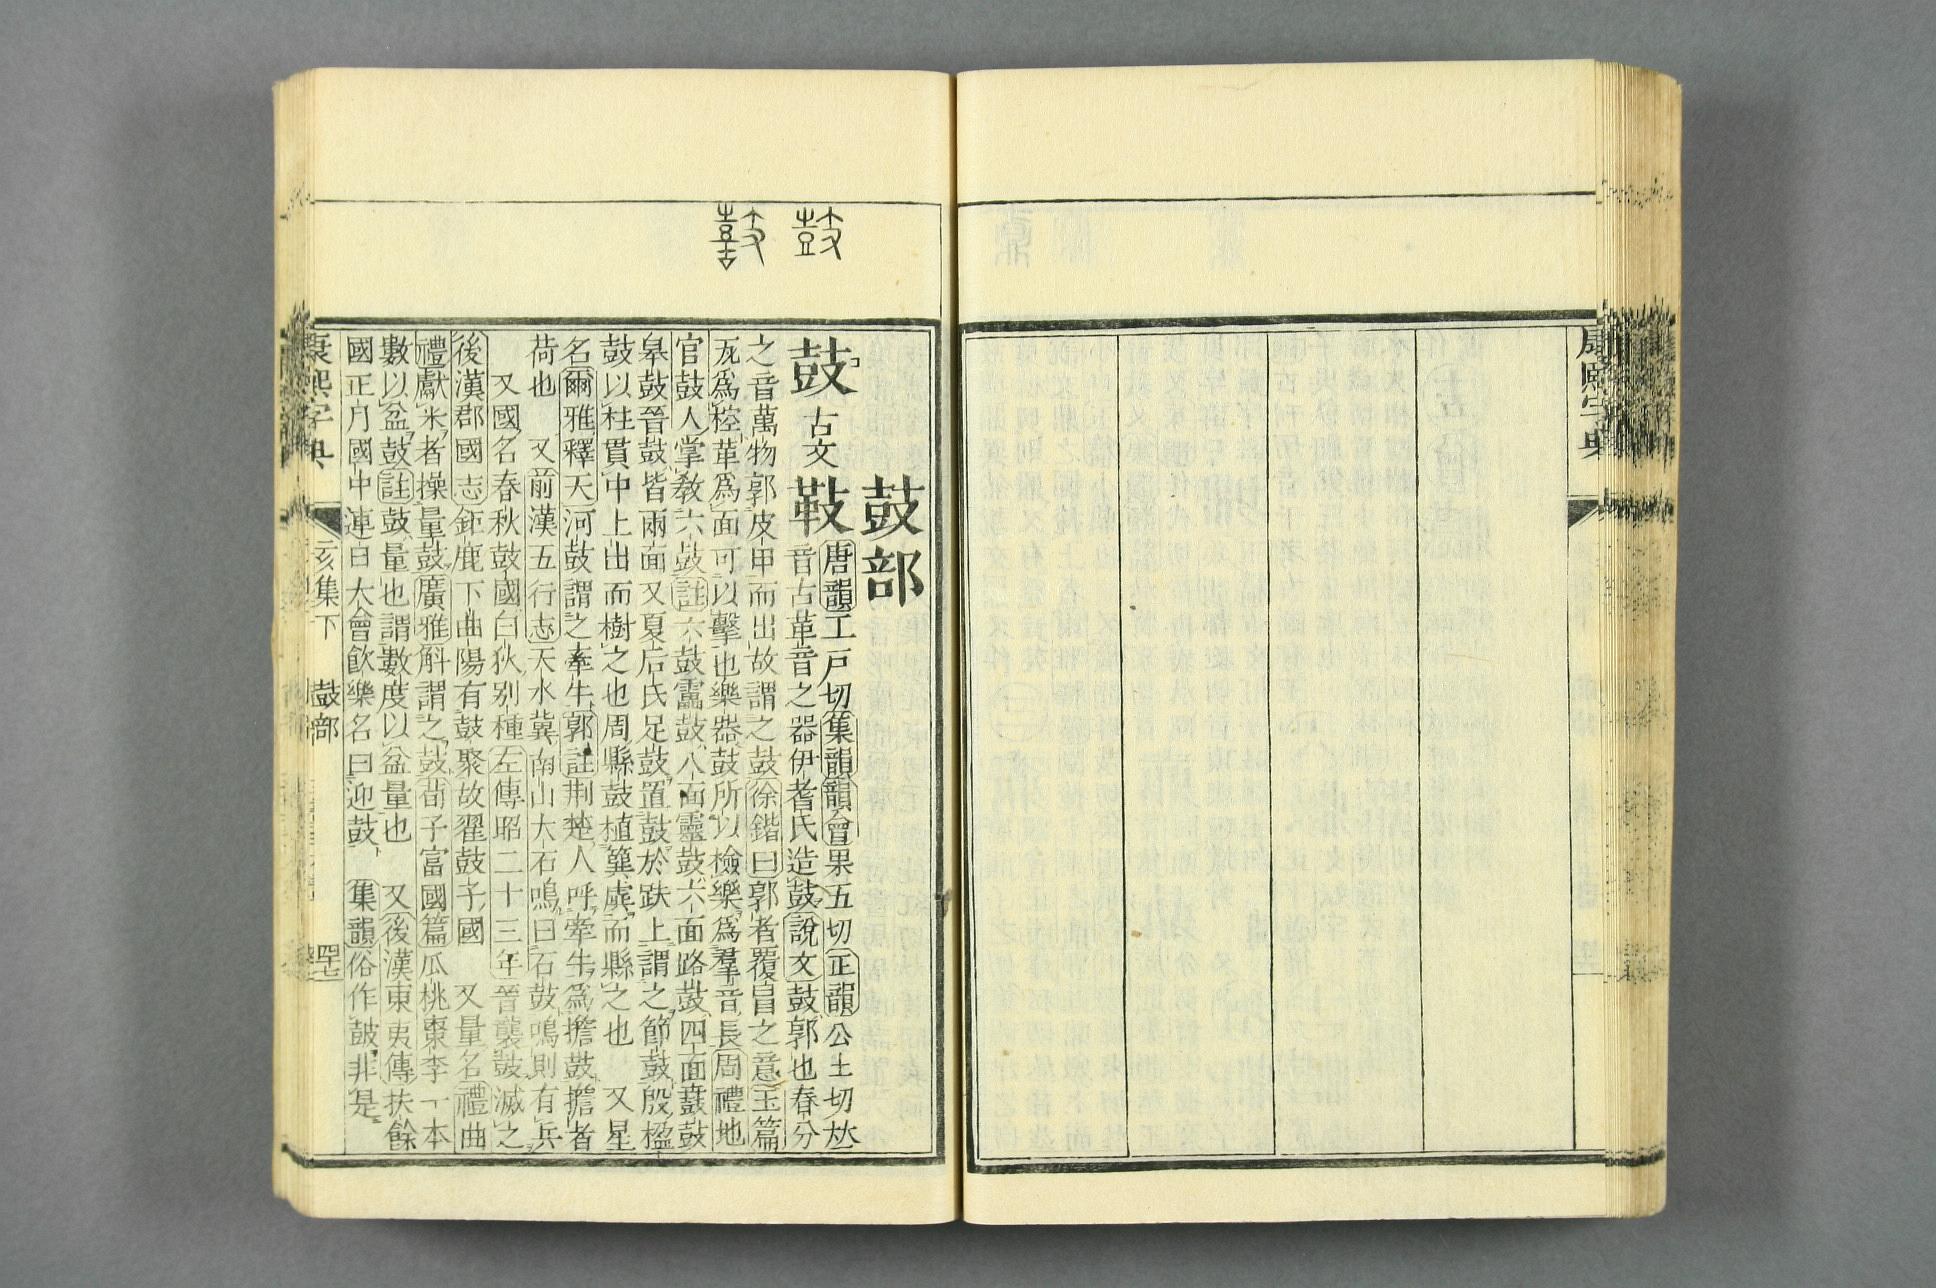 康熙字典
鼓部
鼓 古文
唐韻工戸切集韻韻會果五切正韻公土切𠀤
音古革音之器伊耆氏造鼓說文鼓郭也春分
之音萬物郭皮甲而出故謂之鼓徐鍇曰郭者覆冒之意玉篇
瓦爲椌革爲面可以擊也樂器鼓所以檢樂爲羣音長周禮地
官鼓人掌敎六鼓註六鼓靁鼓八面靈鼓六面路鼓四面鼖鼓
皋鼓晉鼓皆兩面又夏后氏足鼓置鼓於趺上謂之節鼓殷楹
鼓以柱貫中上出而樹之也周縣鼓植簨虡而縣之也 又星
名爾雅釋天河鼓謂之牽牛郭註荆楚人呼牽牛爲擔鼓擔者
荷也 又前漢五行志天水冀南山大石鳴曰石鼓鳴則有兵
又國名春秋鼓國白狄別種左傳昭二十三年晉襲鼓滅之
後漢郡國志鉅鹿下曲陽有鼓聚故翟鼓子國 又量名禮曲
禮獻米者操量鼓廣雅斛謂之鼓荀子富國篇瓜桃棗李一本
數以盆鼓註鼓量也謂數度以盆量也 又後漢東夷傳扶餘
國正月國中連日大會飮樂名曰迎鼓 集韻俗作皷非是
康熙字典 亥集下 鼓部